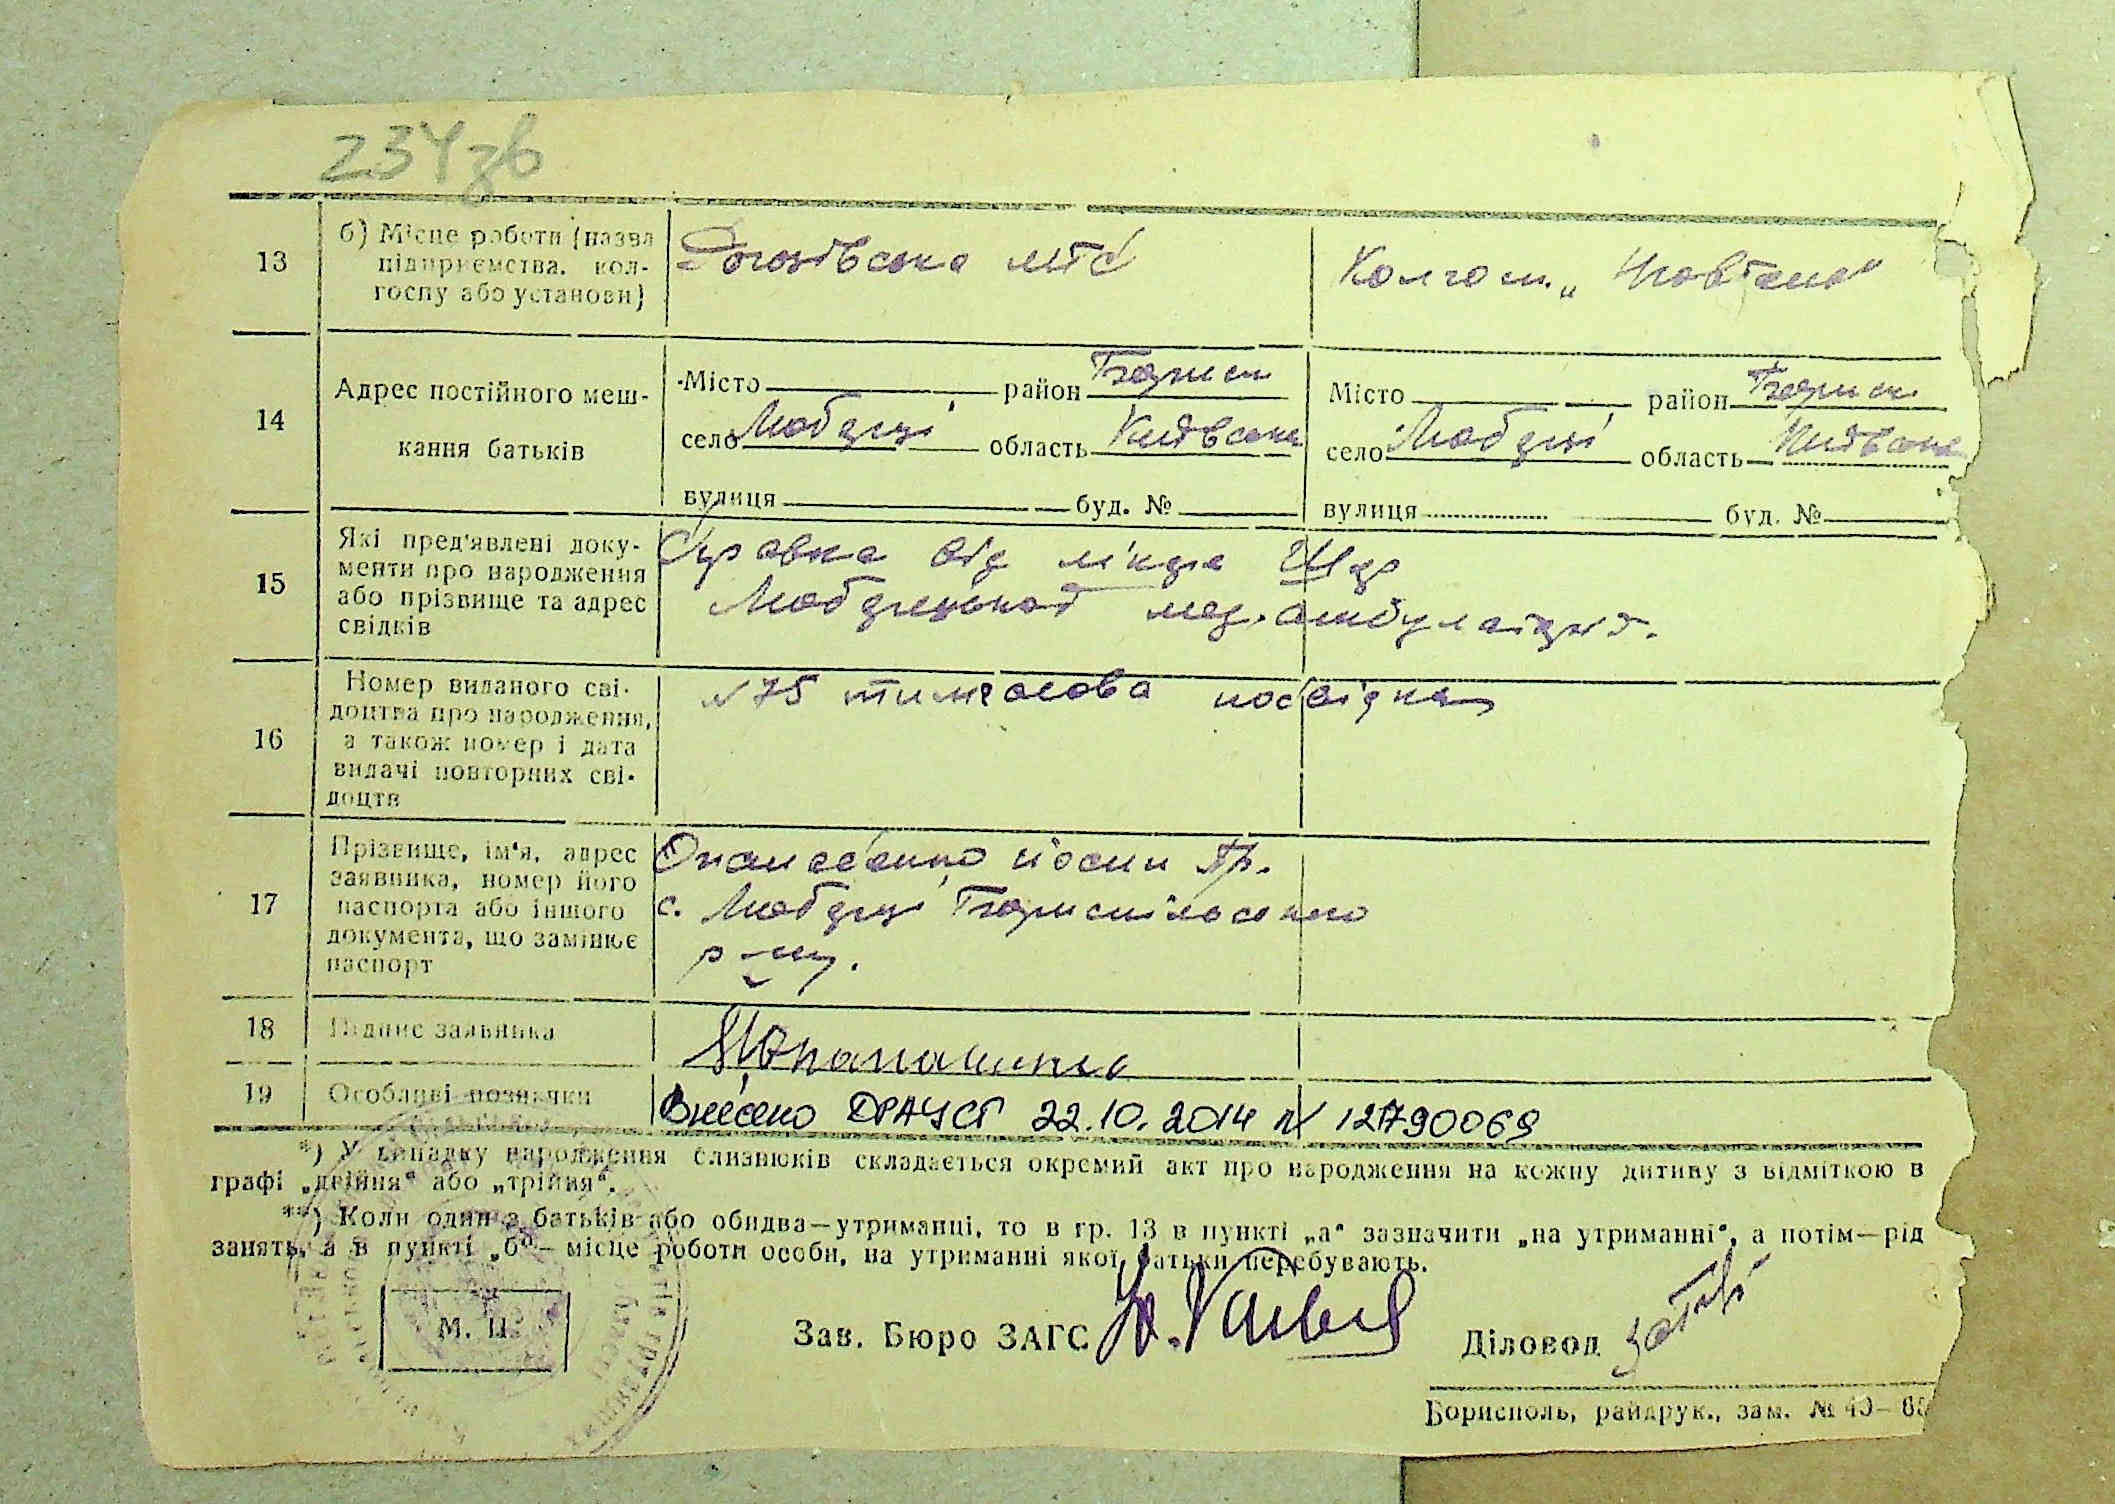 234зв
13 б) Місце роботи (назва підприємства, колгоспу або установи) Рогозівська мтс Колгосп „Жовтень“
14 Адрес постійного мешкання батьків
Місто район Борисп Місто район Борисп
село Любарці область Київська село Любарці область Київська
вулиця буд. № вулиця буд. №
15 Які пред'явлені документи про народження або прізвище та адрес свідків
Справка від лікаря
Любарецької мед. амбулаторії.
16 Номер виданого свідоцтва про народження, а також номер і дата видачі повторних свідоцтв
№75 тимчасова посвідка
17 Прізвище, ім'я, адрес заявника, номер його паспорта або іншого документа, що замінює паспорт
Опанасенко Йосип Гр.
с. Любарці Бориспільського
р-ну.
18 Підпис заявника
19 Особливі позначки Внесено ДРАЦСГ 22.10.2014 № 12790069
*) У випадку народження близнюків складається окремий акт про народження на кожну дитину з відміткою в
графі „двійня“ або „трійня“.
**) Коли один з батьків або обидва—утриманці, то в гр. 13 в пункті „а“ зазначити „на утриманні“, а потім—рід
занять, а в пункті „б“— місце роботи особи, на утриманні якої батьки перебувають.
М. П.
Зав. Бюро ЗАГС Діловод
Борисполь, райдрук., зам. № 40—